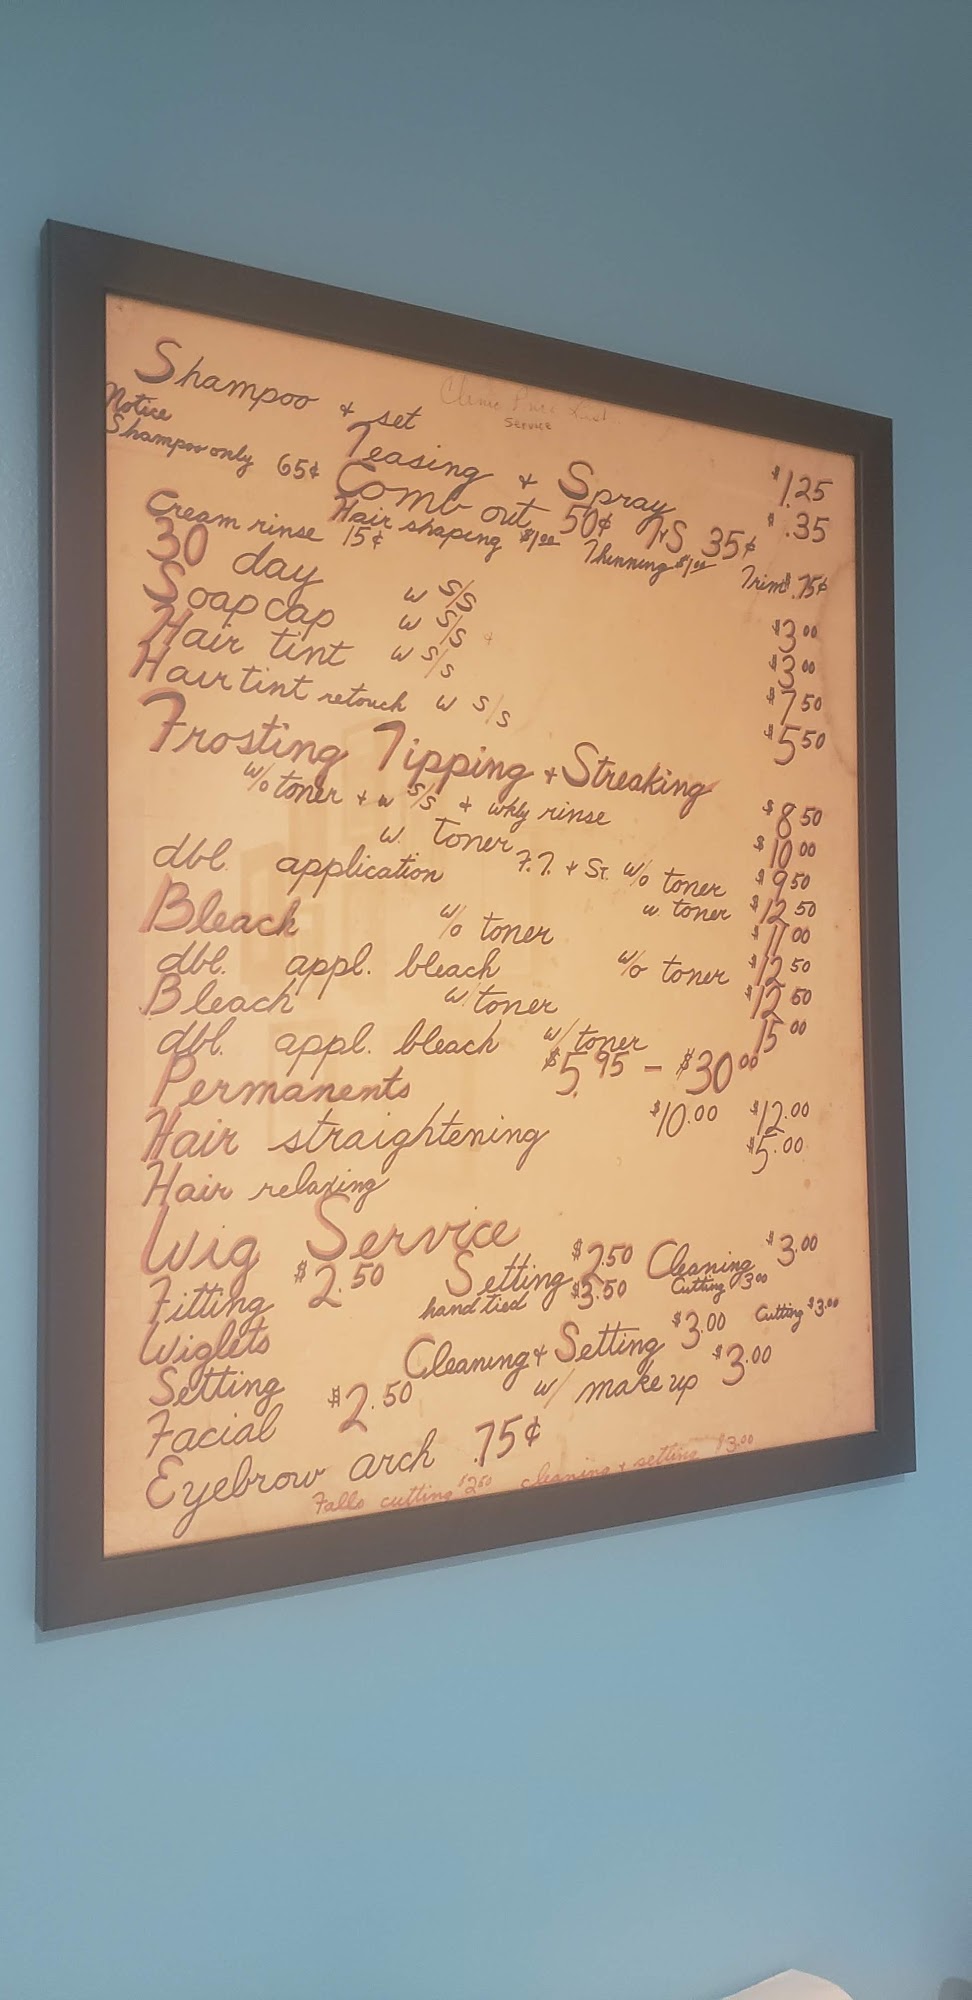 Clinic Price List
Service
Shampoo & set $1.25
Notice
Shampoo only 65¢
Teasing & Spray $.35
Comb out 50¢ T&S 35¢
Cream rinse 15¢ Hair shaping $1.00 Thinning $1.00 Trim $.75¢
30 day w S/S $3.00
Soap cap w S/S $3.00
Hair tint w S/S $7.50
Hair tint retouch w S/S $5.50
Frosting Tipping & Streaking
w/o toner & w S/S & wkly rinse $8.50
w. toner $10.00
dbl. application F.T. & St. w/o toner $9.50
w toner $12.50
Bleach w/o toner $11.00
dbl. appl. bleach w/o toner $12.50
Bleach w/toner $12.50
dbl. appl. bleach w/toner 15.00
Permanents $5.95 - $30.00
Hair straightening $10.00 $12.00
Hair relaxing $5.00
Wig Service
Fitting $2.50 Setting $2.50 Cleaning $3.00
hand tied $3.50 Cutting 3.00
Wiglets
Setting Cleaning & Setting $3.00 Cutting $3.00
Facial $2.50 w/ make up $3.00
Eyebrow arch .75¢
Falls cutting $2.50 cleaning & setting $3.00